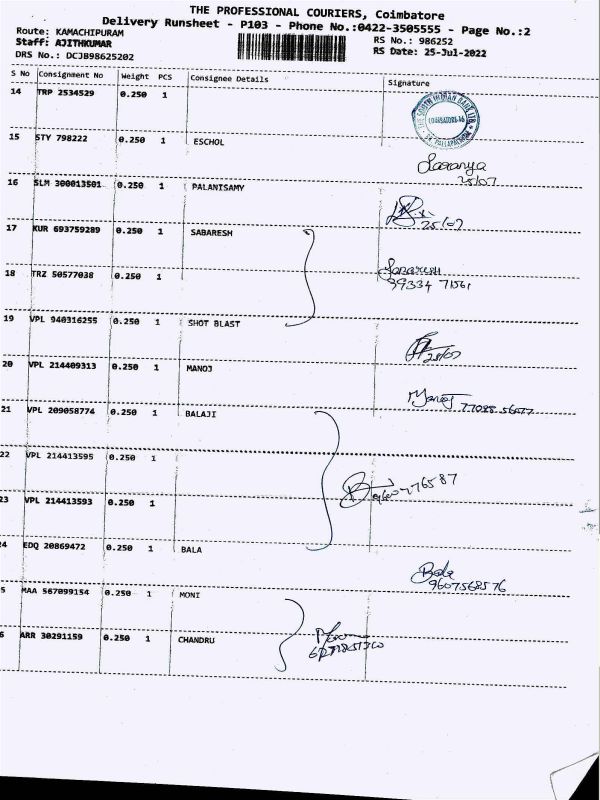 THE PROFESSIONAL COURIERS, Coimbatore
Delivery Runsheet - P103 - Phone No.:0422-3505555 - Page No.:2
Route: KAMACHIPURAM
RS No.: 986252
Staff: AJITHKUMAR
RS Date: 25-Jul-2022
DRS No.: DCJB98625202
S No Consignment No Weight PCS Consignee Details Signature
14 TRP 2534529 0.250 1
THE SOUTH INDIAN BANK LTD
15 STY 798222 0.250 1 ESCHOL
Saranya
25/07
16 SLM 300013501 0.250 1 PALANISAMY
25/07
17 KUR 693759289 0.250 1 SABARESH
18 TRZ 50577038 0.250 1
Sabaresh
99334 71561
19 VPL 940316255 0.250 1 SHOT BLAST
25/07
20 VPL 214409313 0.250 1 MANOJ
Manoj
21 VPL 209058774 0.250 1 BALAJI
22 VPL 214413595 0.250 1
23 VPL 214413593 0.250 1
24 EDQ 20869472 0.250 1 BALA
Bala
9607568576
5 MAA 567099154 0.250 1 MONI
6 ARR 30291159 0.250 1 CHANDRU